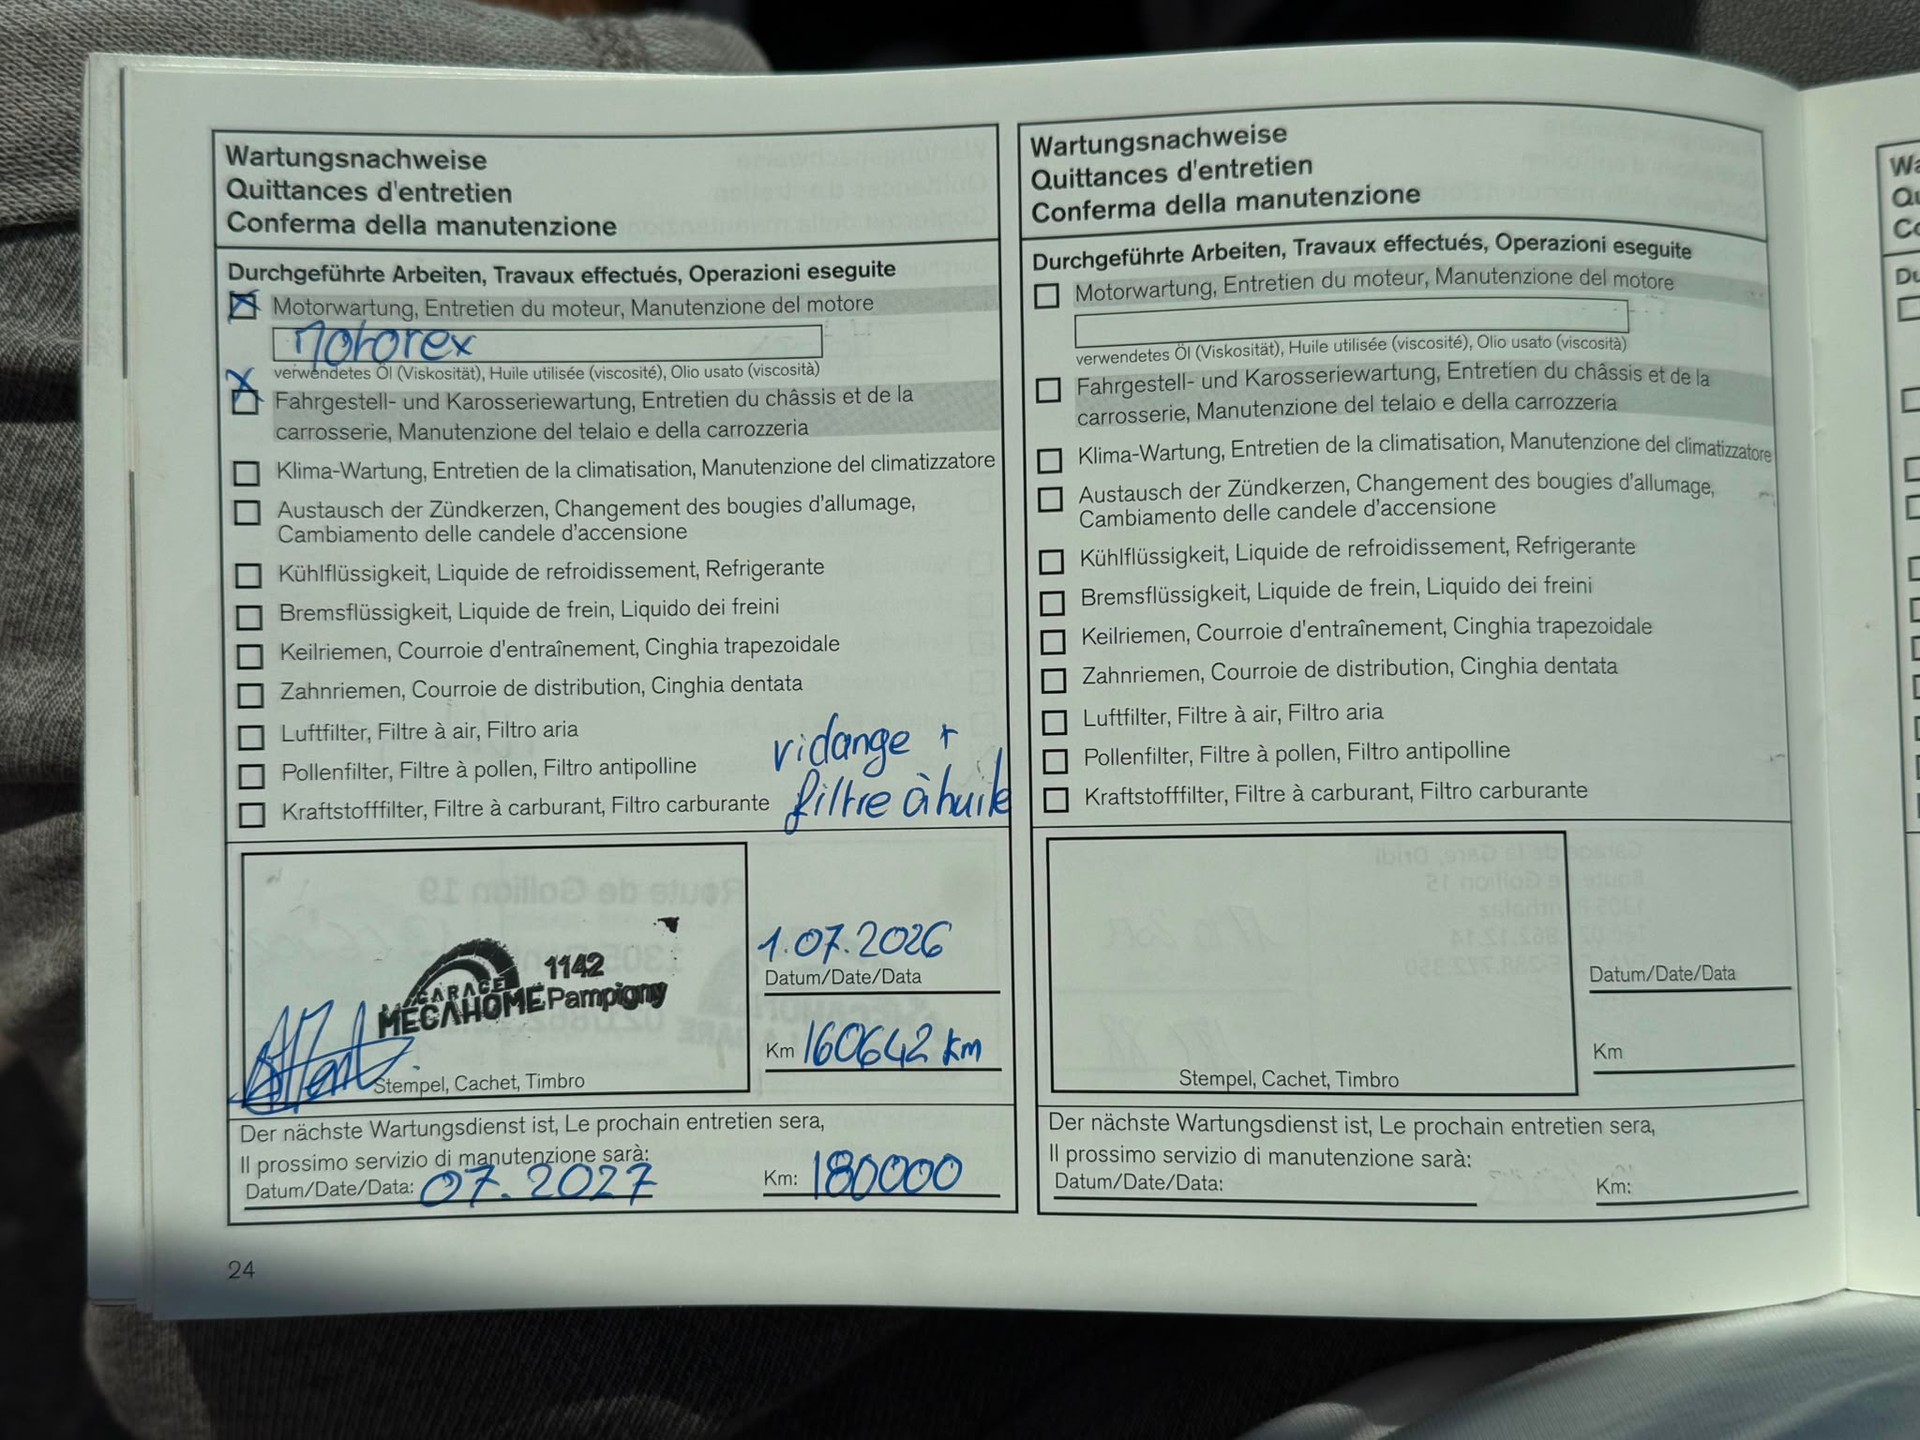 Wartungsnachweise
Quittances d'entretien
Conferma della manutenzione
Durchgeführte Arbeiten, Travaux effectués, Operazioni eseguite
Motorwartung, Entretien du moteur, Manutenzione del motore
Motorex
verwendetes Öl (Viskosität), Huile utilisée (viscosité), Olio usato (viscosità)
Fahrgestell- und Karosseriewartung, Entretien du châssis et de la
carrosserie, Manutenzione del telaio e della carrozzeria
Klima-Wartung, Entretien de la climatisation, Manutenzione del climatizzatore
Austausch der Zündkerzen, Changement des bougies d'allumage,
Cambiamento delle candele d'accensione
Kühlflüssigkeit, Liquide de refroidissement, Refrigerante
Bremsflüssigkeit, Liquide de frein, Liquido dei freini
Keilriemen, Courroie d'entraînement, Cinghia trapezoidale
Zahnriemen, Courroie de distribution, Cinghia dentata
Luftfilter, Filtre à air, Filtro aria
Pollenfilter, Filtre à pollen, Filtro antipolline
Kraftstofffilter, Filtre à carburant, Filtro carburante
vidange +
filtre à huile
GARAGE 1142
MECAHOME Pampigny
Stempel, Cachet, Timbro
1.07.2026
Datum/Date/Data
Km 160642 km
Der nächste Wartungsdienst ist, Le prochain entretien sera,
Il prossimo servizio di manutenzione sarà:
Datum/Date/Data: 07.2027
Km: 180000
24
Wartungsnachweise
Quittances d'entretien
Conferma della manutenzione
Durchgeführte Arbeiten, Travaux effectués, Operazioni eseguite
Motorwartung, Entretien du moteur, Manutenzione del motore
verwendetes Öl (Viskosität), Huile utilisée (viscosité), Olio usato (viscosità)
Fahrgestell- und Karosseriewartung, Entretien du châssis et de la
carrosserie, Manutenzione del telaio e della carrozzeria
Klima-Wartung, Entretien de la climatisation, Manutenzione del climatizzatore
Austausch der Zündkerzen, Changement des bougies d'allumage,
Cambiamento delle candele d'accensione
Kühlflüssigkeit, Liquide de refroidissement, Refrigerante
Bremsflüssigkeit, Liquide de frein, Liquido dei freini
Keilriemen, Courroie d'entraînement, Cinghia trapezoidale
Zahnriemen, Courroie de distribution, Cinghia dentata
Luftfilter, Filtre à air, Filtro aria
Pollenfilter, Filtre à pollen, Filtro antipolline
Kraftstofffilter, Filtre à carburant, Filtro carburante
Stempel, Cachet, Timbro
Datum/Date/Data
Km
Der nächste Wartungsdienst ist, Le prochain entretien sera,
Il prossimo servizio di manutenzione sarà:
Datum/Date/Data:
Km: